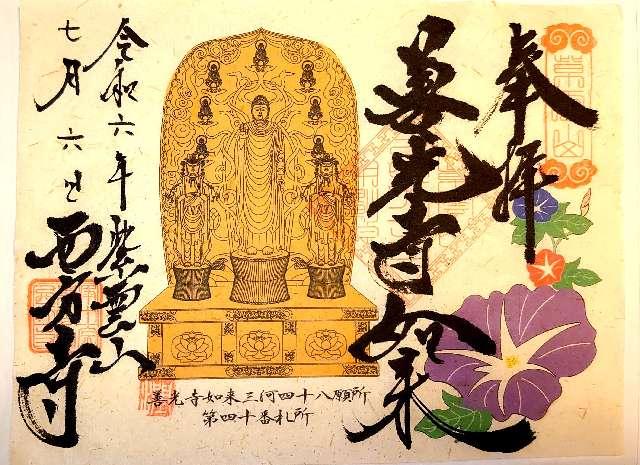 奉拝
善光寺如来
善光寺如来三河四十八願所
第四十番札所
令和六年紫雲山
七月六日西方寺